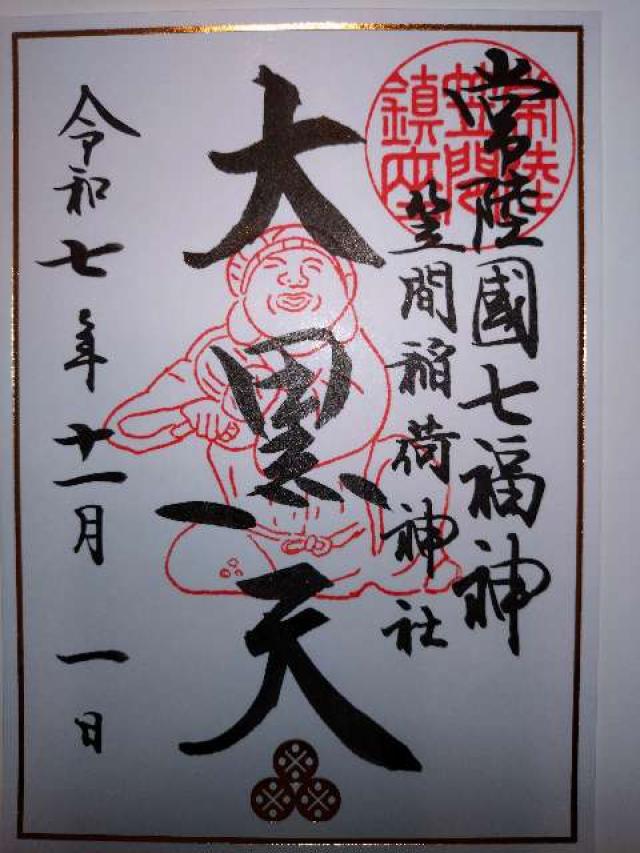 常陸國七福神
笠間稲荷神社
大黒天
令和七年十一月一日
常陸
笠間
鎮座